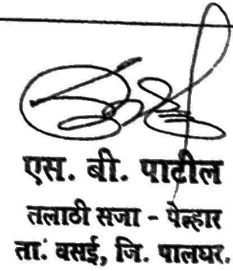 एस. बी. पाटील
तलाठी सजा - पेल्हार
ता. वसई, जि. पालघर.